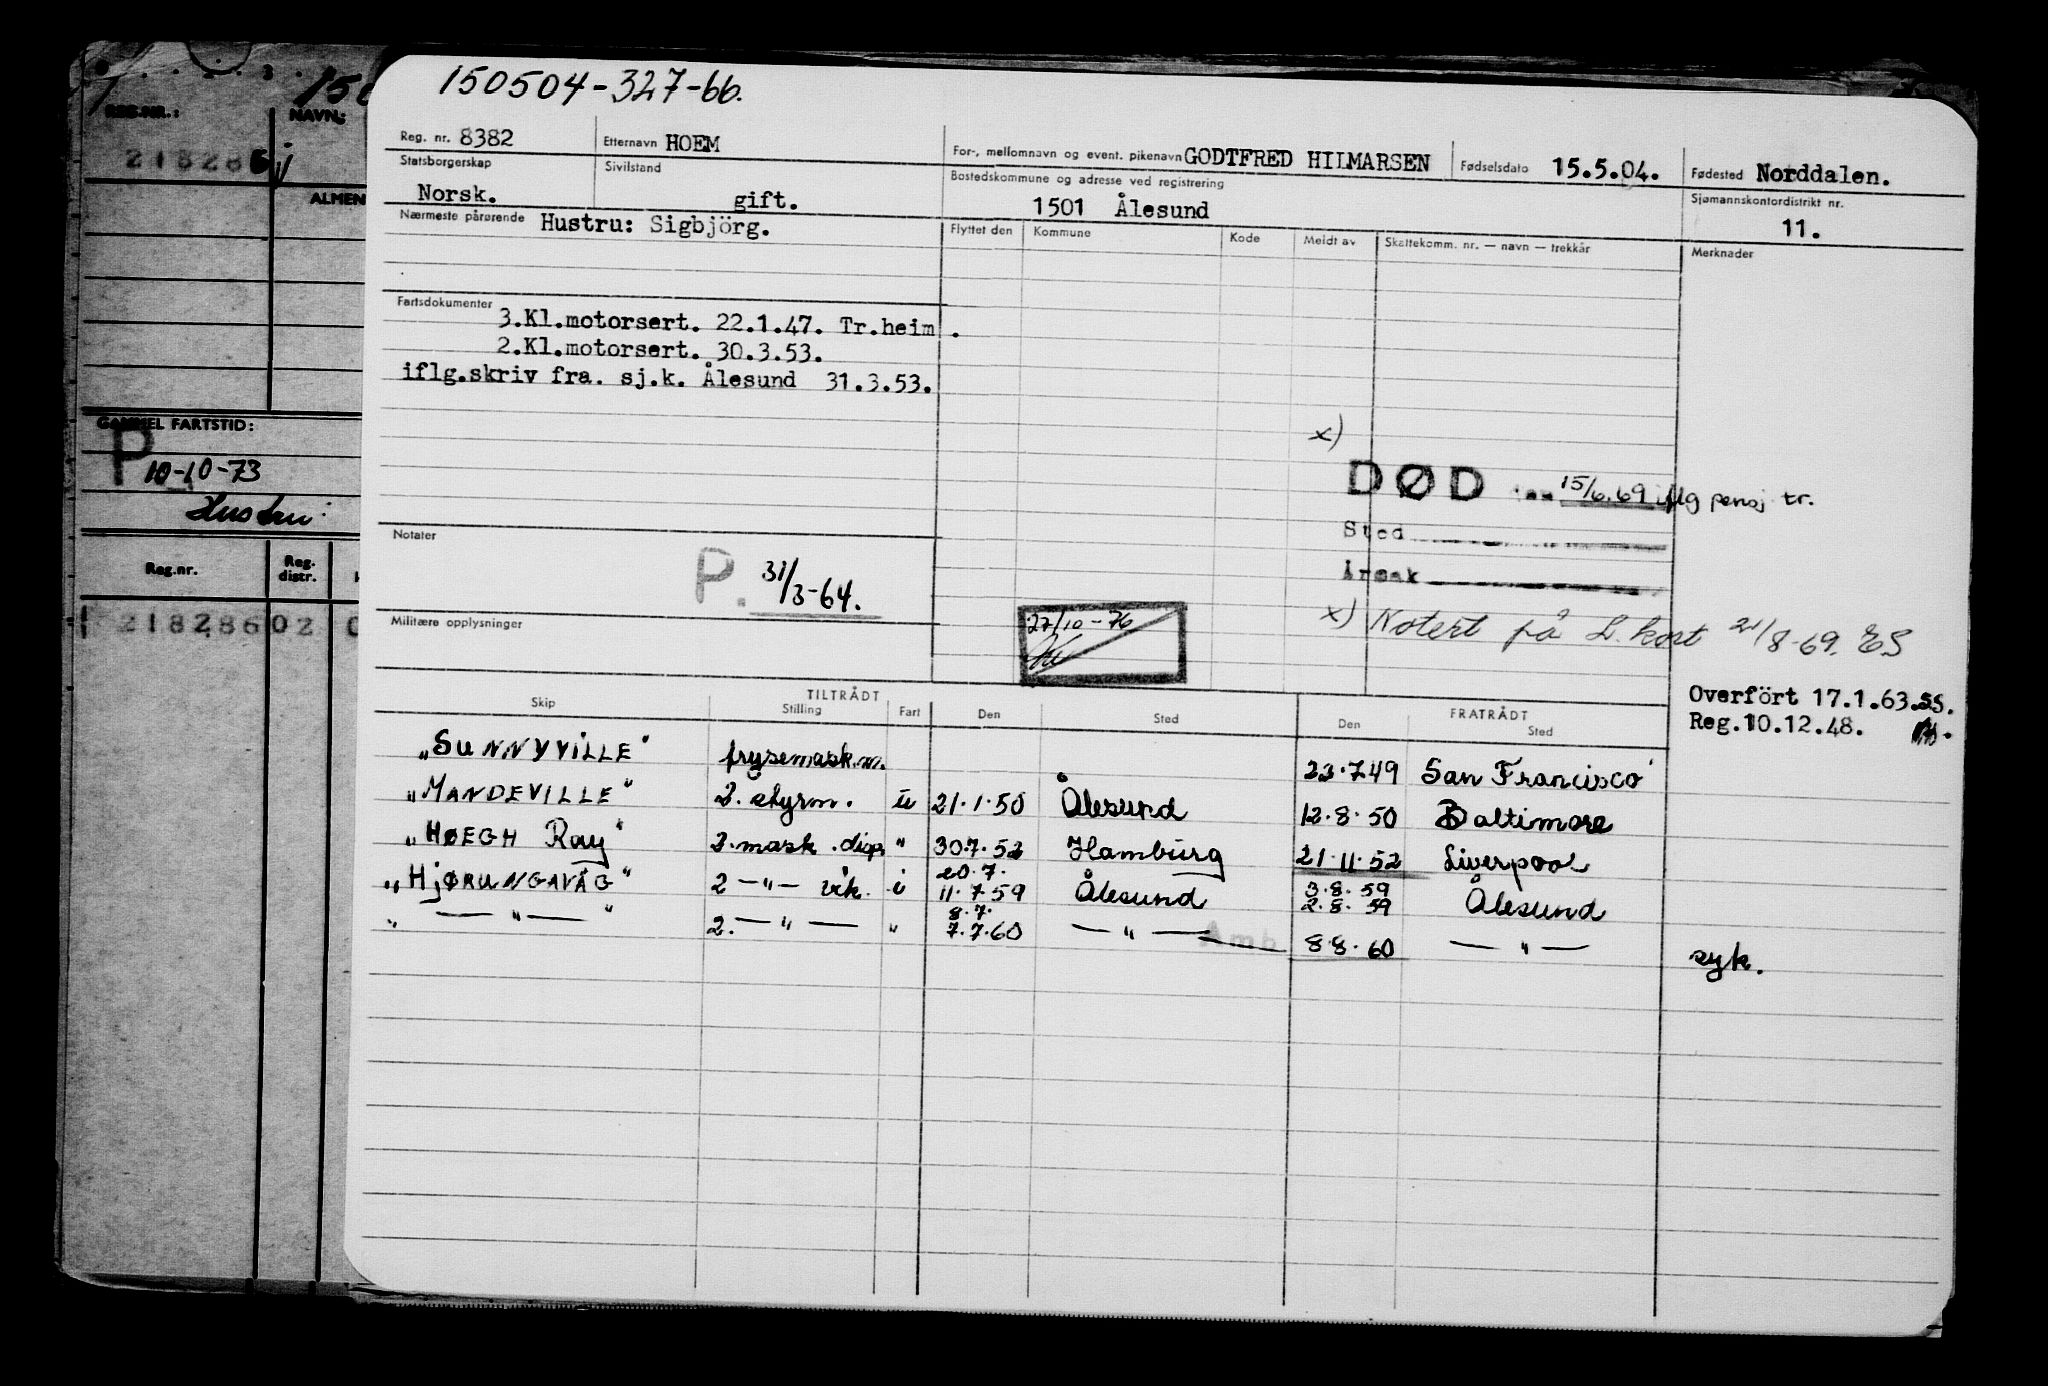 150504-327-66.
Reg. nr. 8382 Etternavn HOEM For-, mellomnavn og event. pikenavn GODTFRED HILMARSEN Fødselsdato 15.5.04. Fødested Norddalen.
Statsborgerskap Norsk. Sivilstand gift. Bostedskommune og adresse ved registrering 1501 Ålesund Sjømannskontordistrikt nr. 11.
Nærmeste pårørende Hustru: Sigbjörg. Flyttet den Kommune Kode Meldt av Skattekomm. nr. — navn — trekkår Merknader
Fartsdokumenter 3.Kl.motorsert. 22.1.47. Tr.heim.
2.Kl.motorsert. 30.3.53.
iflg.skriv fra. sj.k. Ålesund 31.3.53.
x)
DØD 15/6.69 iflg pensj tr.
Sted
Årsak
Notater P. 31/3-64.
x) Notert på L.kort 21/8-69. ES
Militære opplysninger
27/10-76
Overfört 17.1.63.SS.
Reg.10.12.48.
TILTRÅDT FRATRÅDT
Skip Stilling Fart Den Sted Den Sted
"SUNNYVILLE" frysemask.m. 23.7.49 San Francisco
"MANDEVILLE" 2. styrm. u 21.1.50 Ålesund 12.8.50 Baltimore
"HØEGH Ray" 2.mask.disp. " 30.7.52 Hamburg 21.11.52 Liverpool
20.7. 3.8.59
"HJØRUNGAVÅG" 2 —"— vik. i 11.7.59 Ålesund 2.8.59 Ålesund
8.7.
" — " — " 2. — " — " 7.7.60 — " — Amb 8.8.60 — " — syk.
REG.NR.: NAVN:
218286
ALMEN
GAMMEL FARTSTID:
P 10-10-73
Hustru:
Reg.nr. Reg. distr.
218286 02